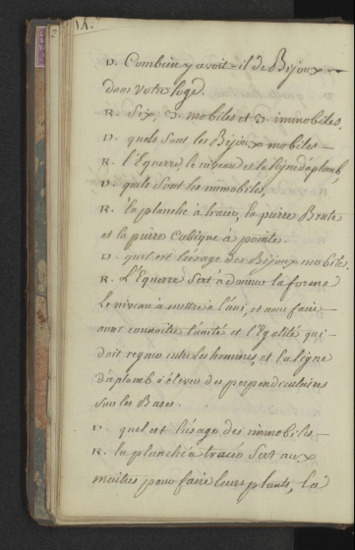 14.
D. Combien y avoit-il de Bijoux
dans votre loge.
R. Six, 3 mobiles et 3 immobiles.
D. quels sont les Bijoux mobiles —
R. l'Equerre, le niveau et la ligne d'aplomb,
D. quels sont les immobiles,
R. la planche à tracer, la pierre Brute
et la pierre Cubique à pointe
D. quel est l'usage des Bijoux mobiles.
R. L'Equerre sert à donner la forme
le niveau à mettre à l'uni, et nous faire —
avoir connoitre l'unité et l'Egalité qui
doit regner entre les hommes, et la ligne
d'aplomb à élever des perpendiculaires
sur les Bases.
D. quel est l'usage des immobiles —
R. la planche à tracer sert aux
maitres pour faire leurs plants, la